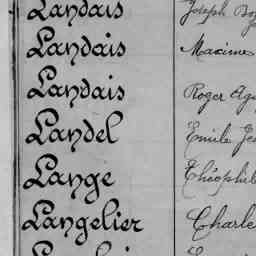 Landais Joseph
Landais Maxime
Landais Roger
Landel Emile
Lange
Langelier Charle